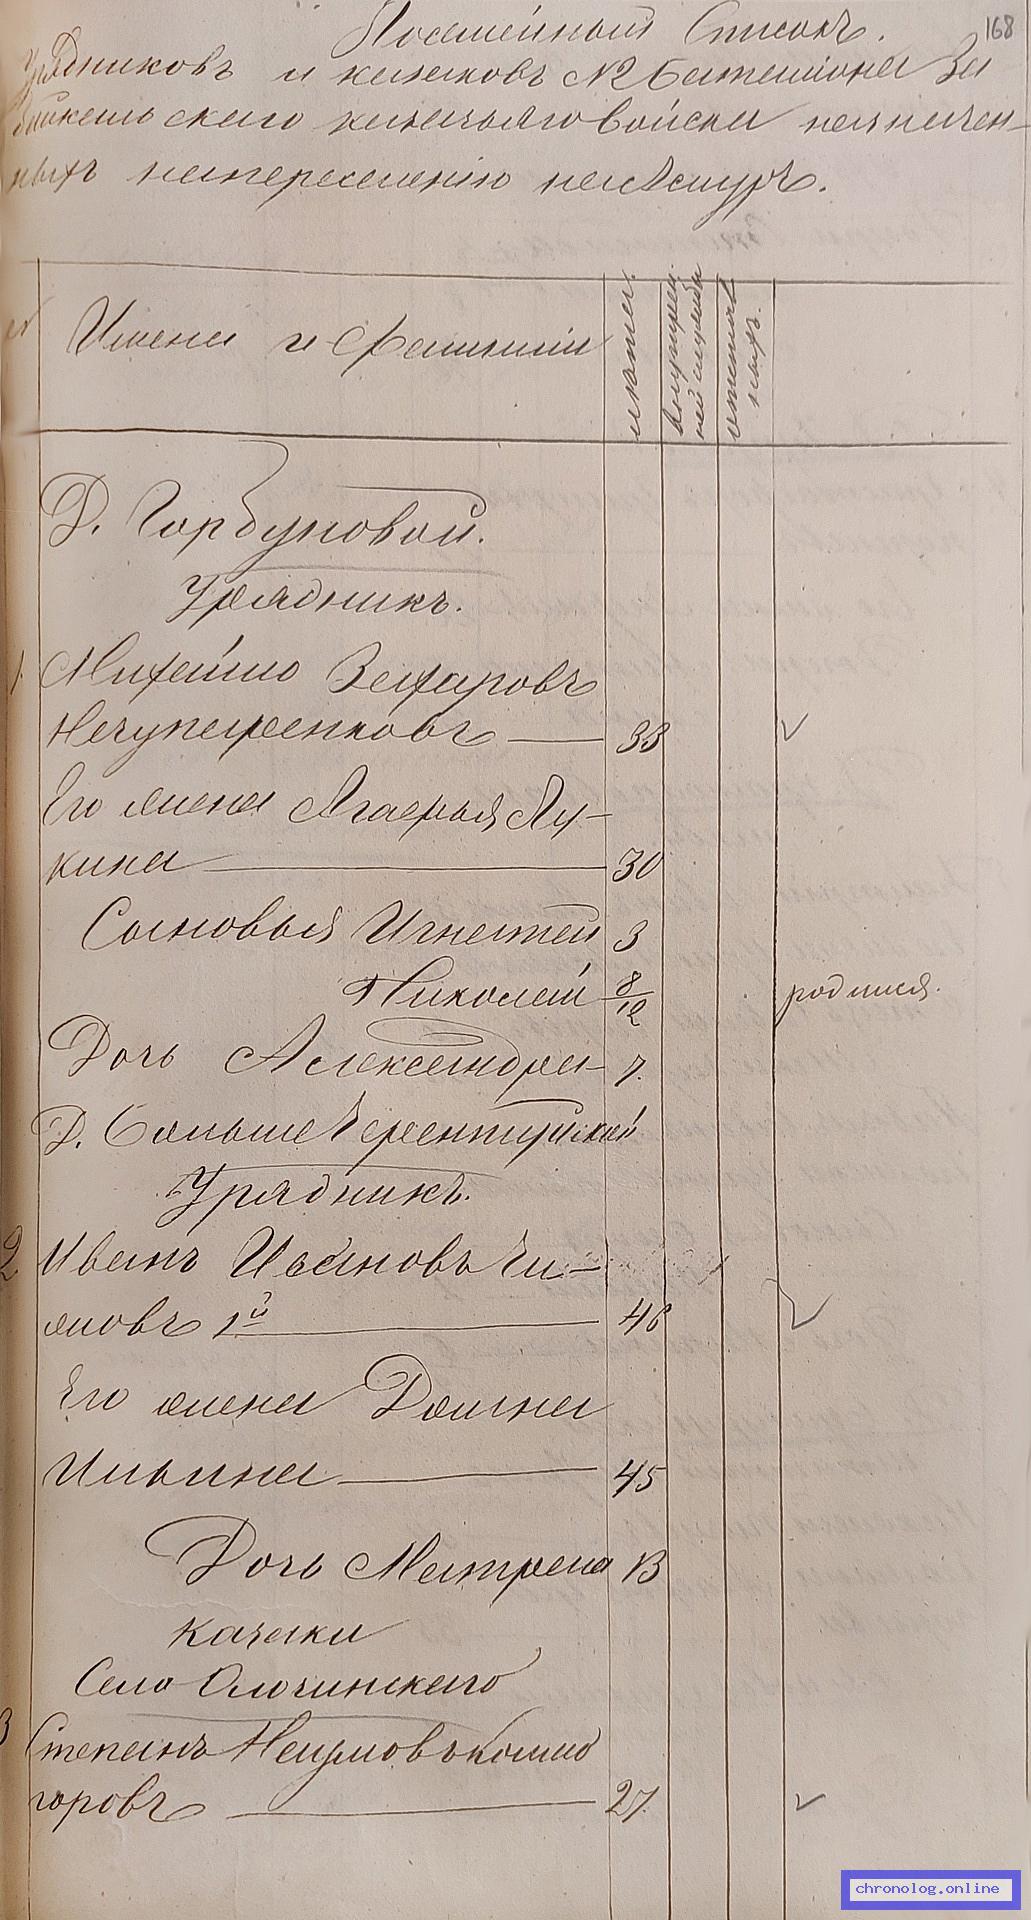 168
Посемейный Списокъ.
Урядниковъ и казаковъ № Баталіона За
байкальскаго казачьяго войска назначен-
ныхъ напереселенію наАмуръ.
Имена и Фамиліи
лѣта.
Д. Горбуновой.
Урядникъ.
1. Михайло Захаровъ
33
Его жена Агафья
кина 30
Сыновья Игнатей 3
Николай 8/12 родился.
Дочь Александра 7.
Урядникъ.
2 Иванъ Ивановъ
мовъ 1й 46
Его жена Домна
Ильина 45
Дочь Матрена 13
Казаки
Село Олочинскаго
3 Степанъ Наумовъ
горовъ 27.
chronolog.online